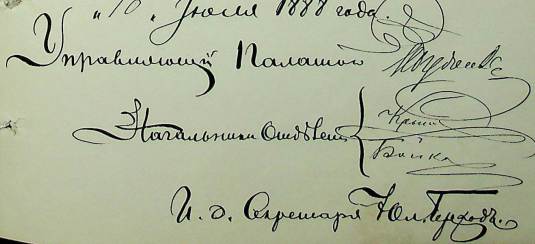 „10„ Іюля 1888 года.
Управляющій Палатою
Начальники Отдѣленій
Бойко
И. д. Секретаря Юл.